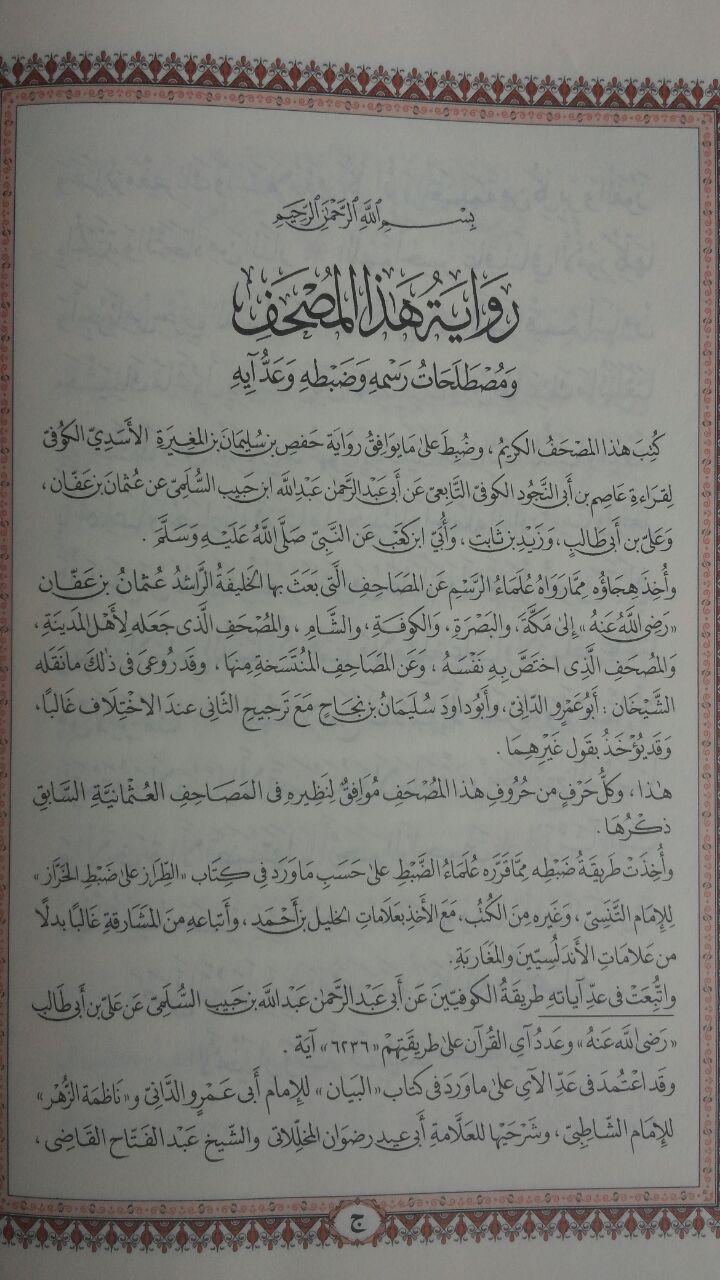 بِسْمِ ٱللَّهِ ٱلرَّحْمَٰنِ ٱلرَّحِيمِ
رِوَايَةُ هَٰذَا الْمُصْحَفِ
وَمُصْطَلَحَاتُ رَسْمِهِ وَضَبْطِهِ وَعَدُّ آيِهِ
كُتِبَ هٰذا المصْحَفُ الكريمُ ، وضُبِطَ علىٰ مَا يوَافِقُ روَايَةَ حَفصِ بن سُليمَانَ بن المغِيرَةِ الأَسَدِيِّ الكُوفيِّ
لِقراءةِ عَاصِم بن أَبي النَّجُود الكوفيِّ التَّابعيِّ عَن أَبي عَبدِ الرَّحمٰن عَبدِ الله ابن حَبيب السُّلَميِّ عن عُثمَان بن عَفَّان ،
وَعَليِّ بن أَبي طَالبٍ ، وَزَيْدِ بن ثَابتٍ ، وَأُبَيِّ ابن كَعْبٍ عَن النَّبيِّ صَلَّى اللَّهُ عَلَيْهِ وَسَلَّمَ .
وأُخِذَ هِجَاؤُه مِمَّا رَوَاهُ عُلَمَاءُ الرَّسْمِ عَن المَصَاحِفِ الَّتي بَعَثَ بها الخَليفَةُ الرَّاشدُ عُثمَانُ بن عَفَّان
«رَضيَ اللهُ عَنهُ» إلىٰ مَكَّةَ ، والبَصْرَةِ ، والكوفَةِ ، والشَّامِ ، والمُصْحَفِ الَّذي جَعَله لِأَهْل المَدينَةِ ،
وَالمُصحَفِ الَّذِي اختَصَّ بِهِ نَفْسَهُ ، وَعَن المَصَاحِفِ المُنْتَسَخةِ مِنهَا ، وقَد رُوعيَ في ذٰلكَ مَا نقَله
الشَّيْخَان : أَبُو عَمْرٍو الدَّانيّ ، وأَبُو دَاودَ سُلَيمَانُ بن نجَاحٍ مَعَ تَرجيحِ الثَّاني عندَ الاخْتِلَاف غَالبًا ،
وَقَد يُؤْخَذُ بقَول غَيْرِهِمَا .
هٰذا ، وكلُّ حَرْفٍ من حُرُوفِ هٰذا المُصْحَفِ مُوَافِقٌ لِنَظِيرِهِ في المَصَاحِفِ العُثْمانيَّةِ السَّابقِ
ذِكْرُهَا .
وأُخِذَتْ طَرِيقَةُ ضَبْطِهِ مِمَّا قَرَّرَهُ عُلَمَاءُ الضَّبْطِ علىٰ حَسَبِ مَا وَرَدَ في كِتَابِ «الطِّرَاز علىٰ ضَبْطِ الخَرَّاز»
لِلإمَام التَّنَسِيِّ ، وَغَيرِه مِنَ الكُتُب ، مَعَ الأَخذِ بعَلَامَاتِ الخَليل بن أَحْمَد ، وأَتبَاعهِ منَ المَشَارقَةِ غَالبًا بَدلًا
من عَلَامَاتِ الأَندَلُسيِّينَ والمغَاربَةِ .
واتُّبِعَتْ في عدِّ آيَاتهِ طريقَةُ الكوفيِّينَ عَن أَبي عَبْدِ الرَّحمٰن عَبدِ الله بن حَبيبٍ السُّلَميِّ عَن عَليِّ بن أَبي طَالب
«رَضيَ الله عَنهُ» وعَددُ آيِ القُرآن علىٰ طَريقَتِهِمْ «٦٢٣٦» آيَة .
وقَد اعْتُمِدَ في عَدِّ الآيِ علىٰ مَا وَرَدَ في كتاب «البيَان» للإمام أَبي عَمْرٍو الدَّانيِّ و«نَاظمَة الزُّهْر»
للإمَام الشَّاطِبيِّ ، وشَرْحَيْها للعَلَّامةِ أَبي عِيدٍ رضوَان المخلِّلاتي والشَّيخِ عَبد الفَتَّاح القَاضي ،
ج